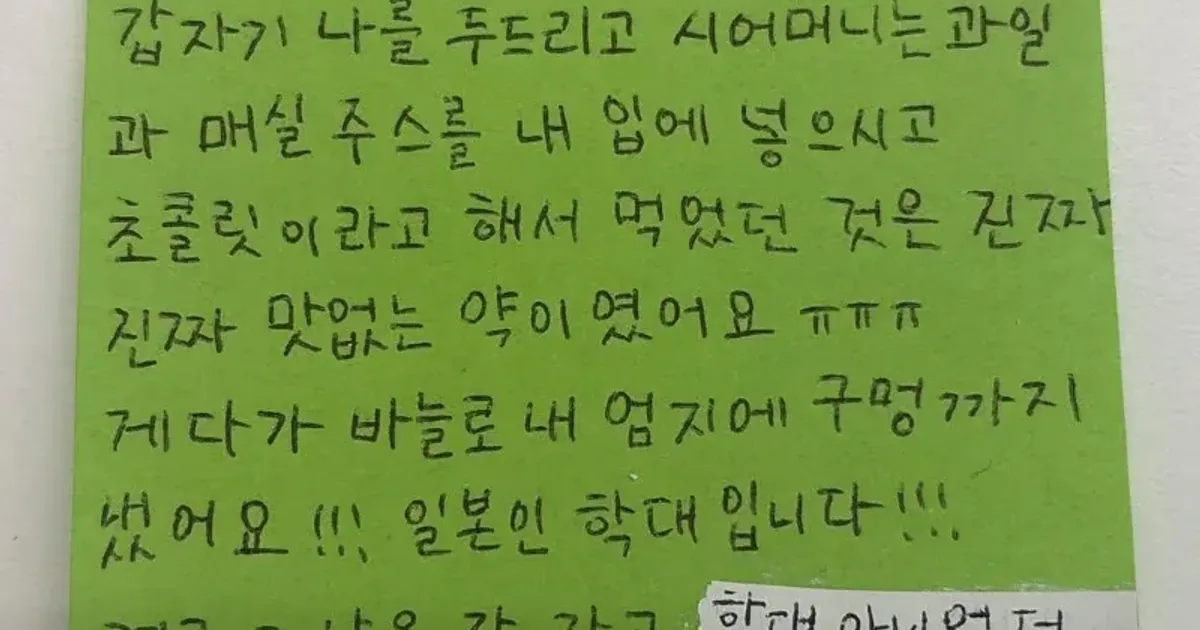 갑자기 나를 두드리고 시어머니는 과일
과 매실 주스를 내 입에 넣으시고
초콜릿이라고 해서 먹었던 것은 진짜
진짜 맛없는 약이였어요 ㅠㅠㅠ
게다가 바늘로 내 엄지에 구멍까지
냈어요!!! 일본인 학대입니다!!!